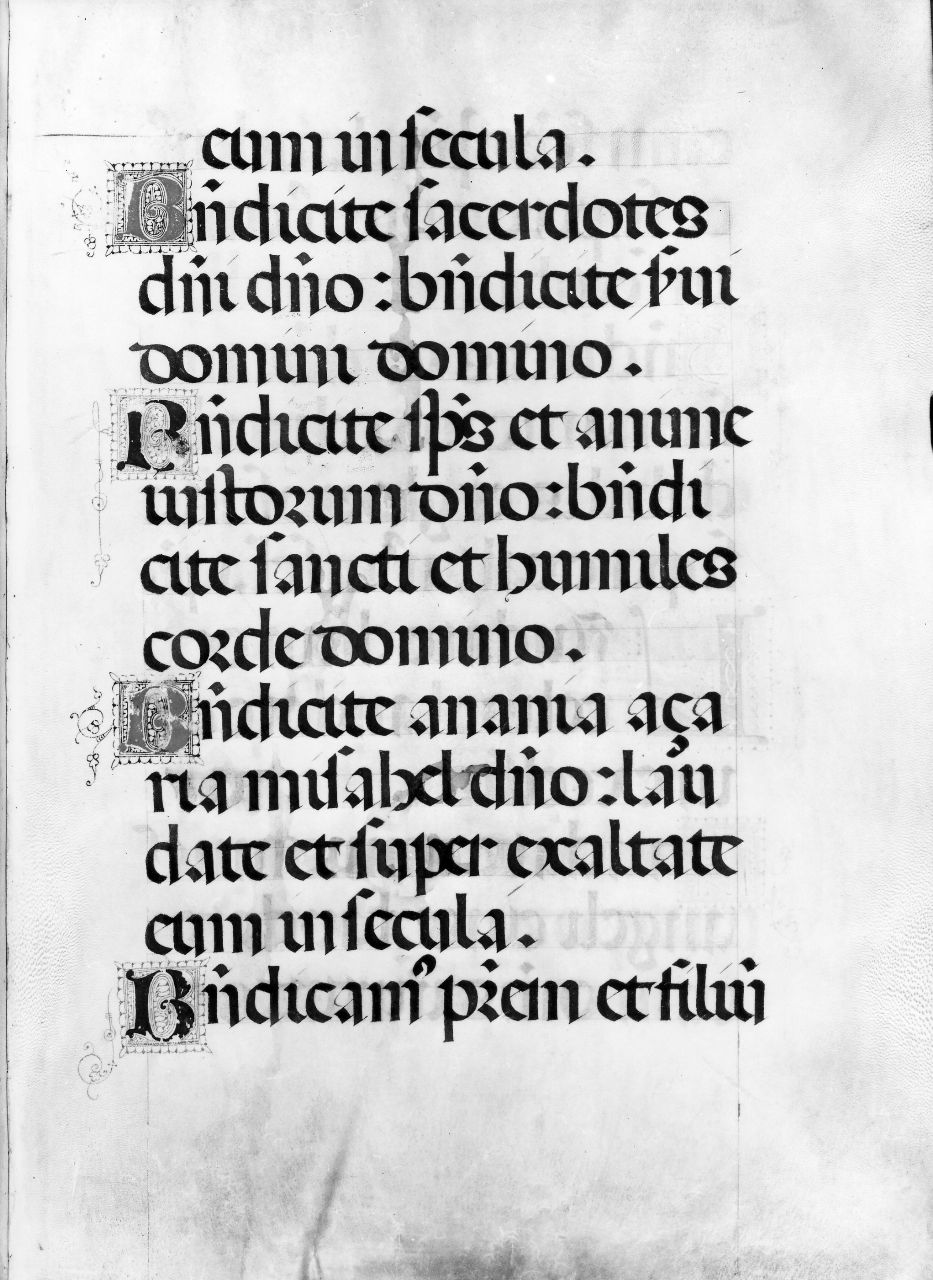 eum in secula.
Bñdicite sacerdotes
dñi dño : bñdicite s̃ui
domini domino.
Bñdicite sp̃s et anime
iustorum dño : bñdi
cite sancti et humiles
corde domino.
Bñdicite anania aça
ria misahel dño : lau
date et super exaltate
eum in secula.
Bñdicamꝰ pr̃em et filiũ